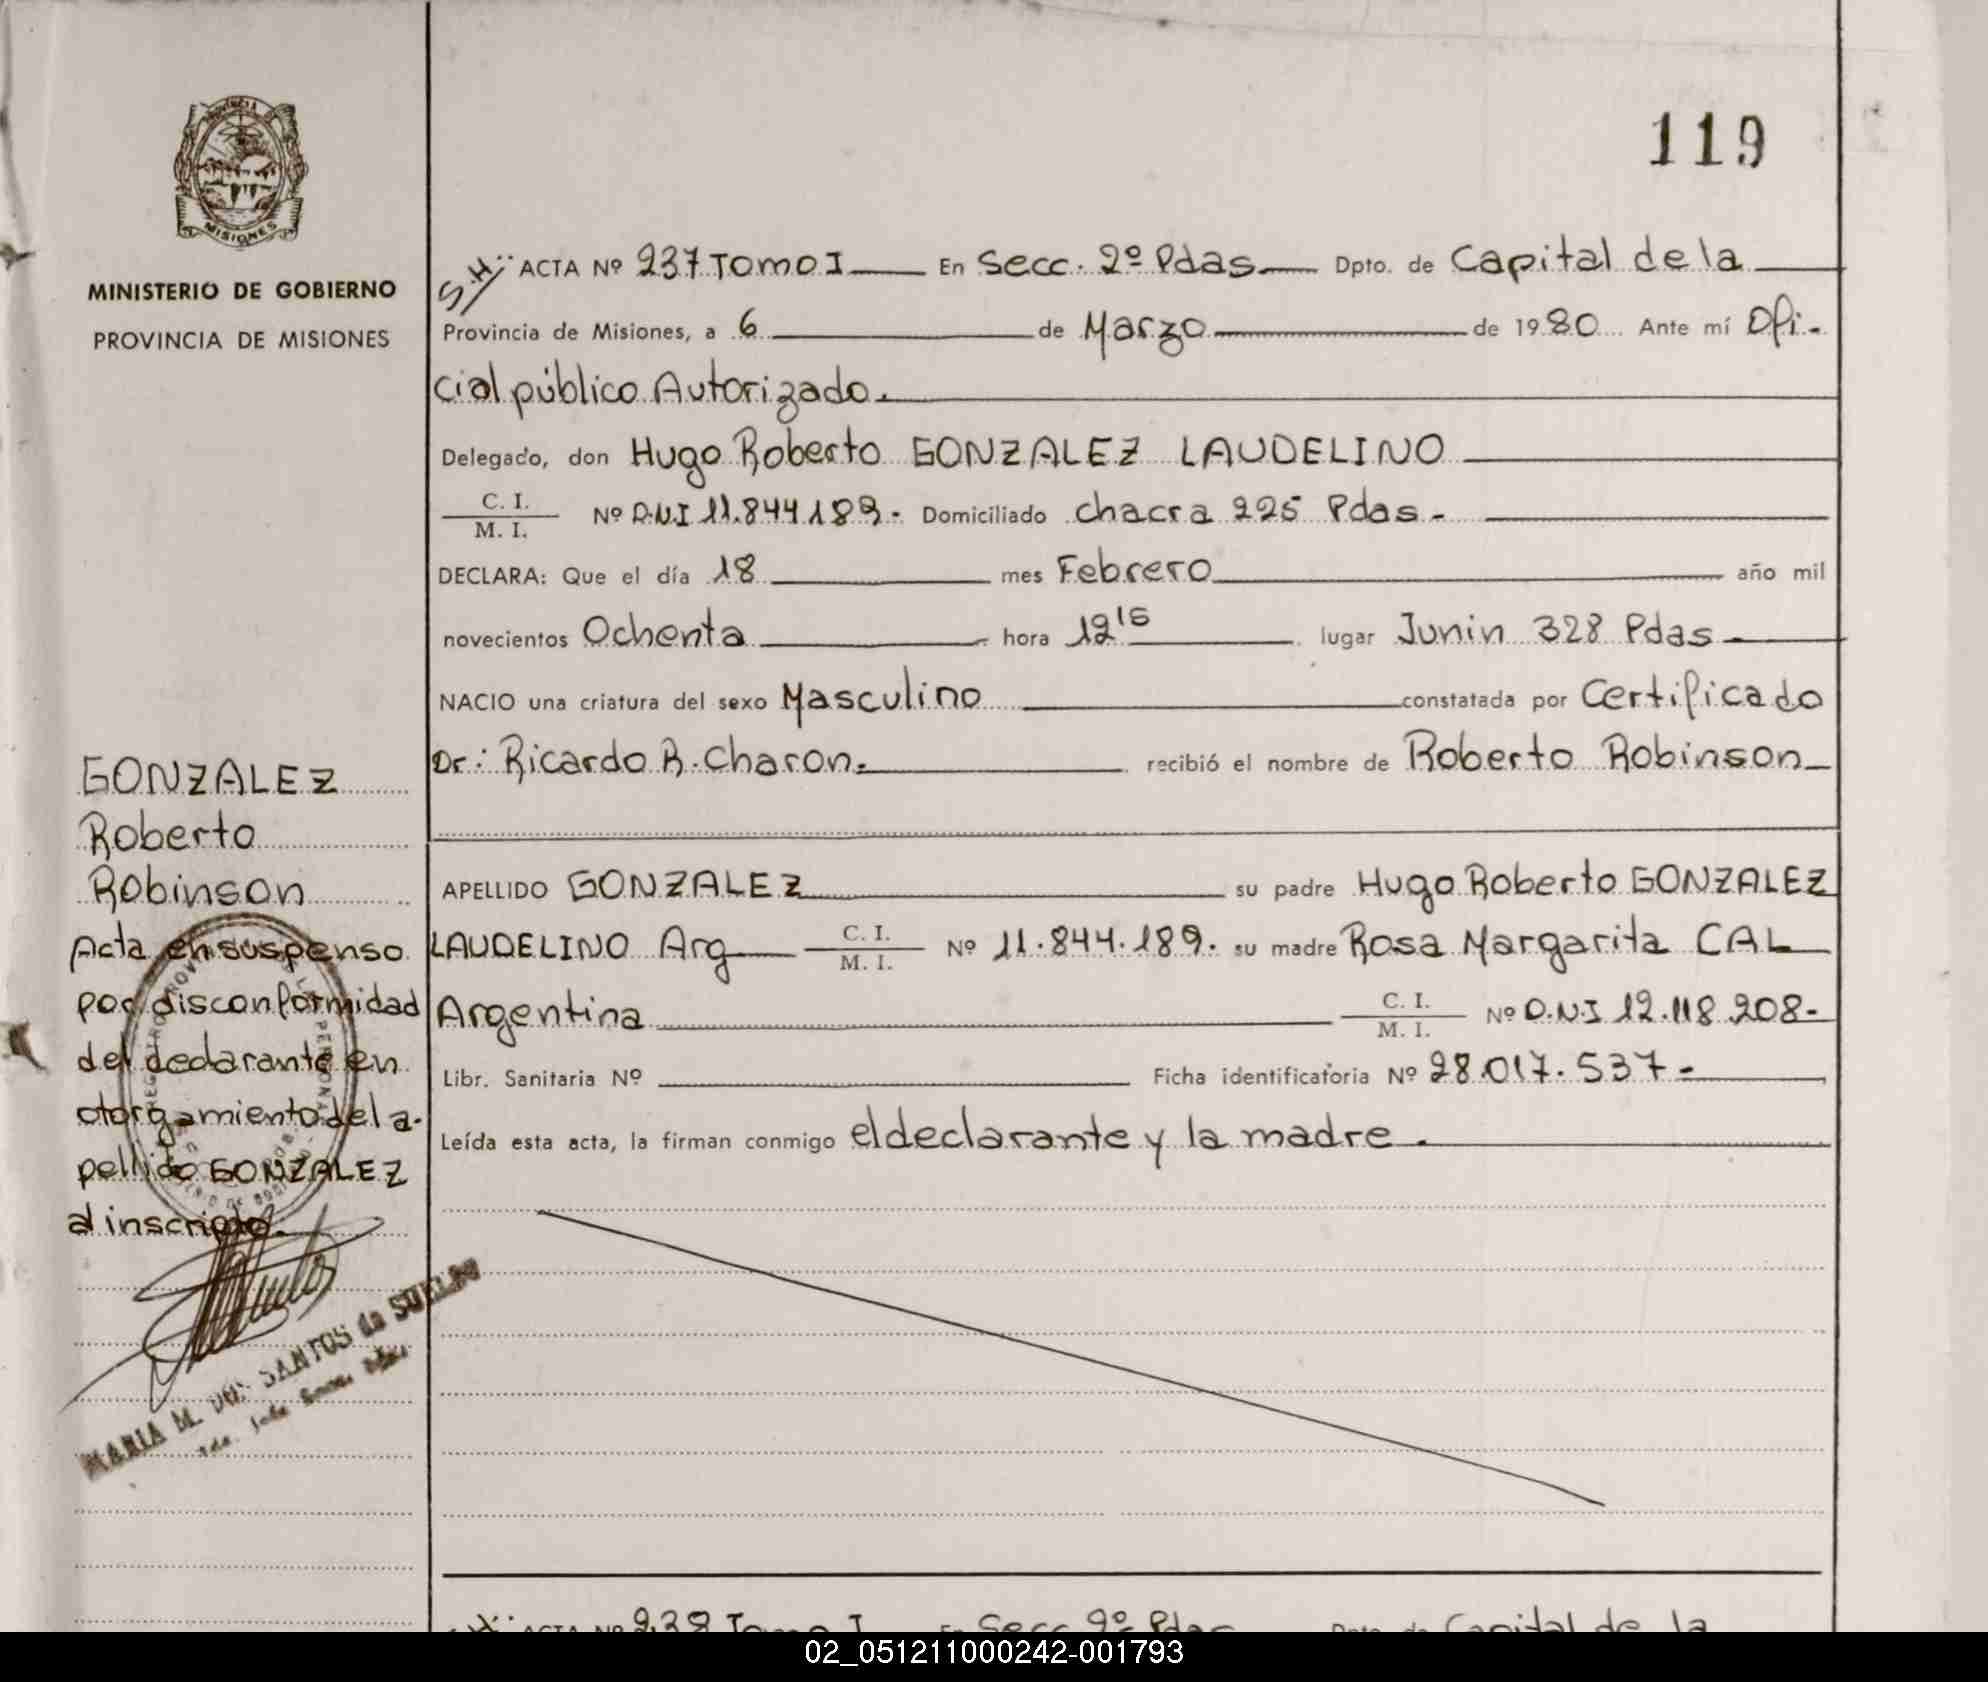 PROVINCIA DE
MISIONES
MINISTERIO DE GOBIERNO
PROVINCIA DE MISIONES
119
S.H/ ACTA Nº 237 Tomo I En Secc. 2º Pdas Dpto. de Capital de la
Provincia de Misiones, a 6 de Marzo de 1980 Ante mí Ofi-
cial público Autorizado.
Delegado, don Hugo Roberto GONZALEZ LAUDELINO
C. I.
M. I.
Nº D.N.I 11.844.189. Domiciliado chacra 225 Pdas.
DECLARA: Que el día 18 mes Febrero año mil
novecientos Ochenta hora 12 15 lugar Junin 328 Pdas
NACIO una criatura del sexo Masculino constatada por Certificado
Dr: Ricardo R. Charon. recibió el nombre de Roberto Robinson
APELLIDO GONZALEZ su padre Hugo Roberto GONZALEZ
LAUDELINO Arg C. I. M. I. Nº 11.844.189. su madre Rosa Margarita CAL
Argentina C. I. M. I. Nº D.N.I 12.118.208-
Libr. Sanitaria Nº Ficha identificatoria Nº 28.017.537-
Leída esta acta, la firman conmigo el declarante y la madre.
GONZALEZ
Roberto
Robinson
Acta en suspenso
por disconformidad
del declarante en
otorgamiento del a-
pellido GONZALEZ
al inscripto.
MARIA M. DOS SANTOS de
ACTA Nº 238 Tomo I En Secc 2º Pdas Dpto. de Capital de la
02_051211000242-001793